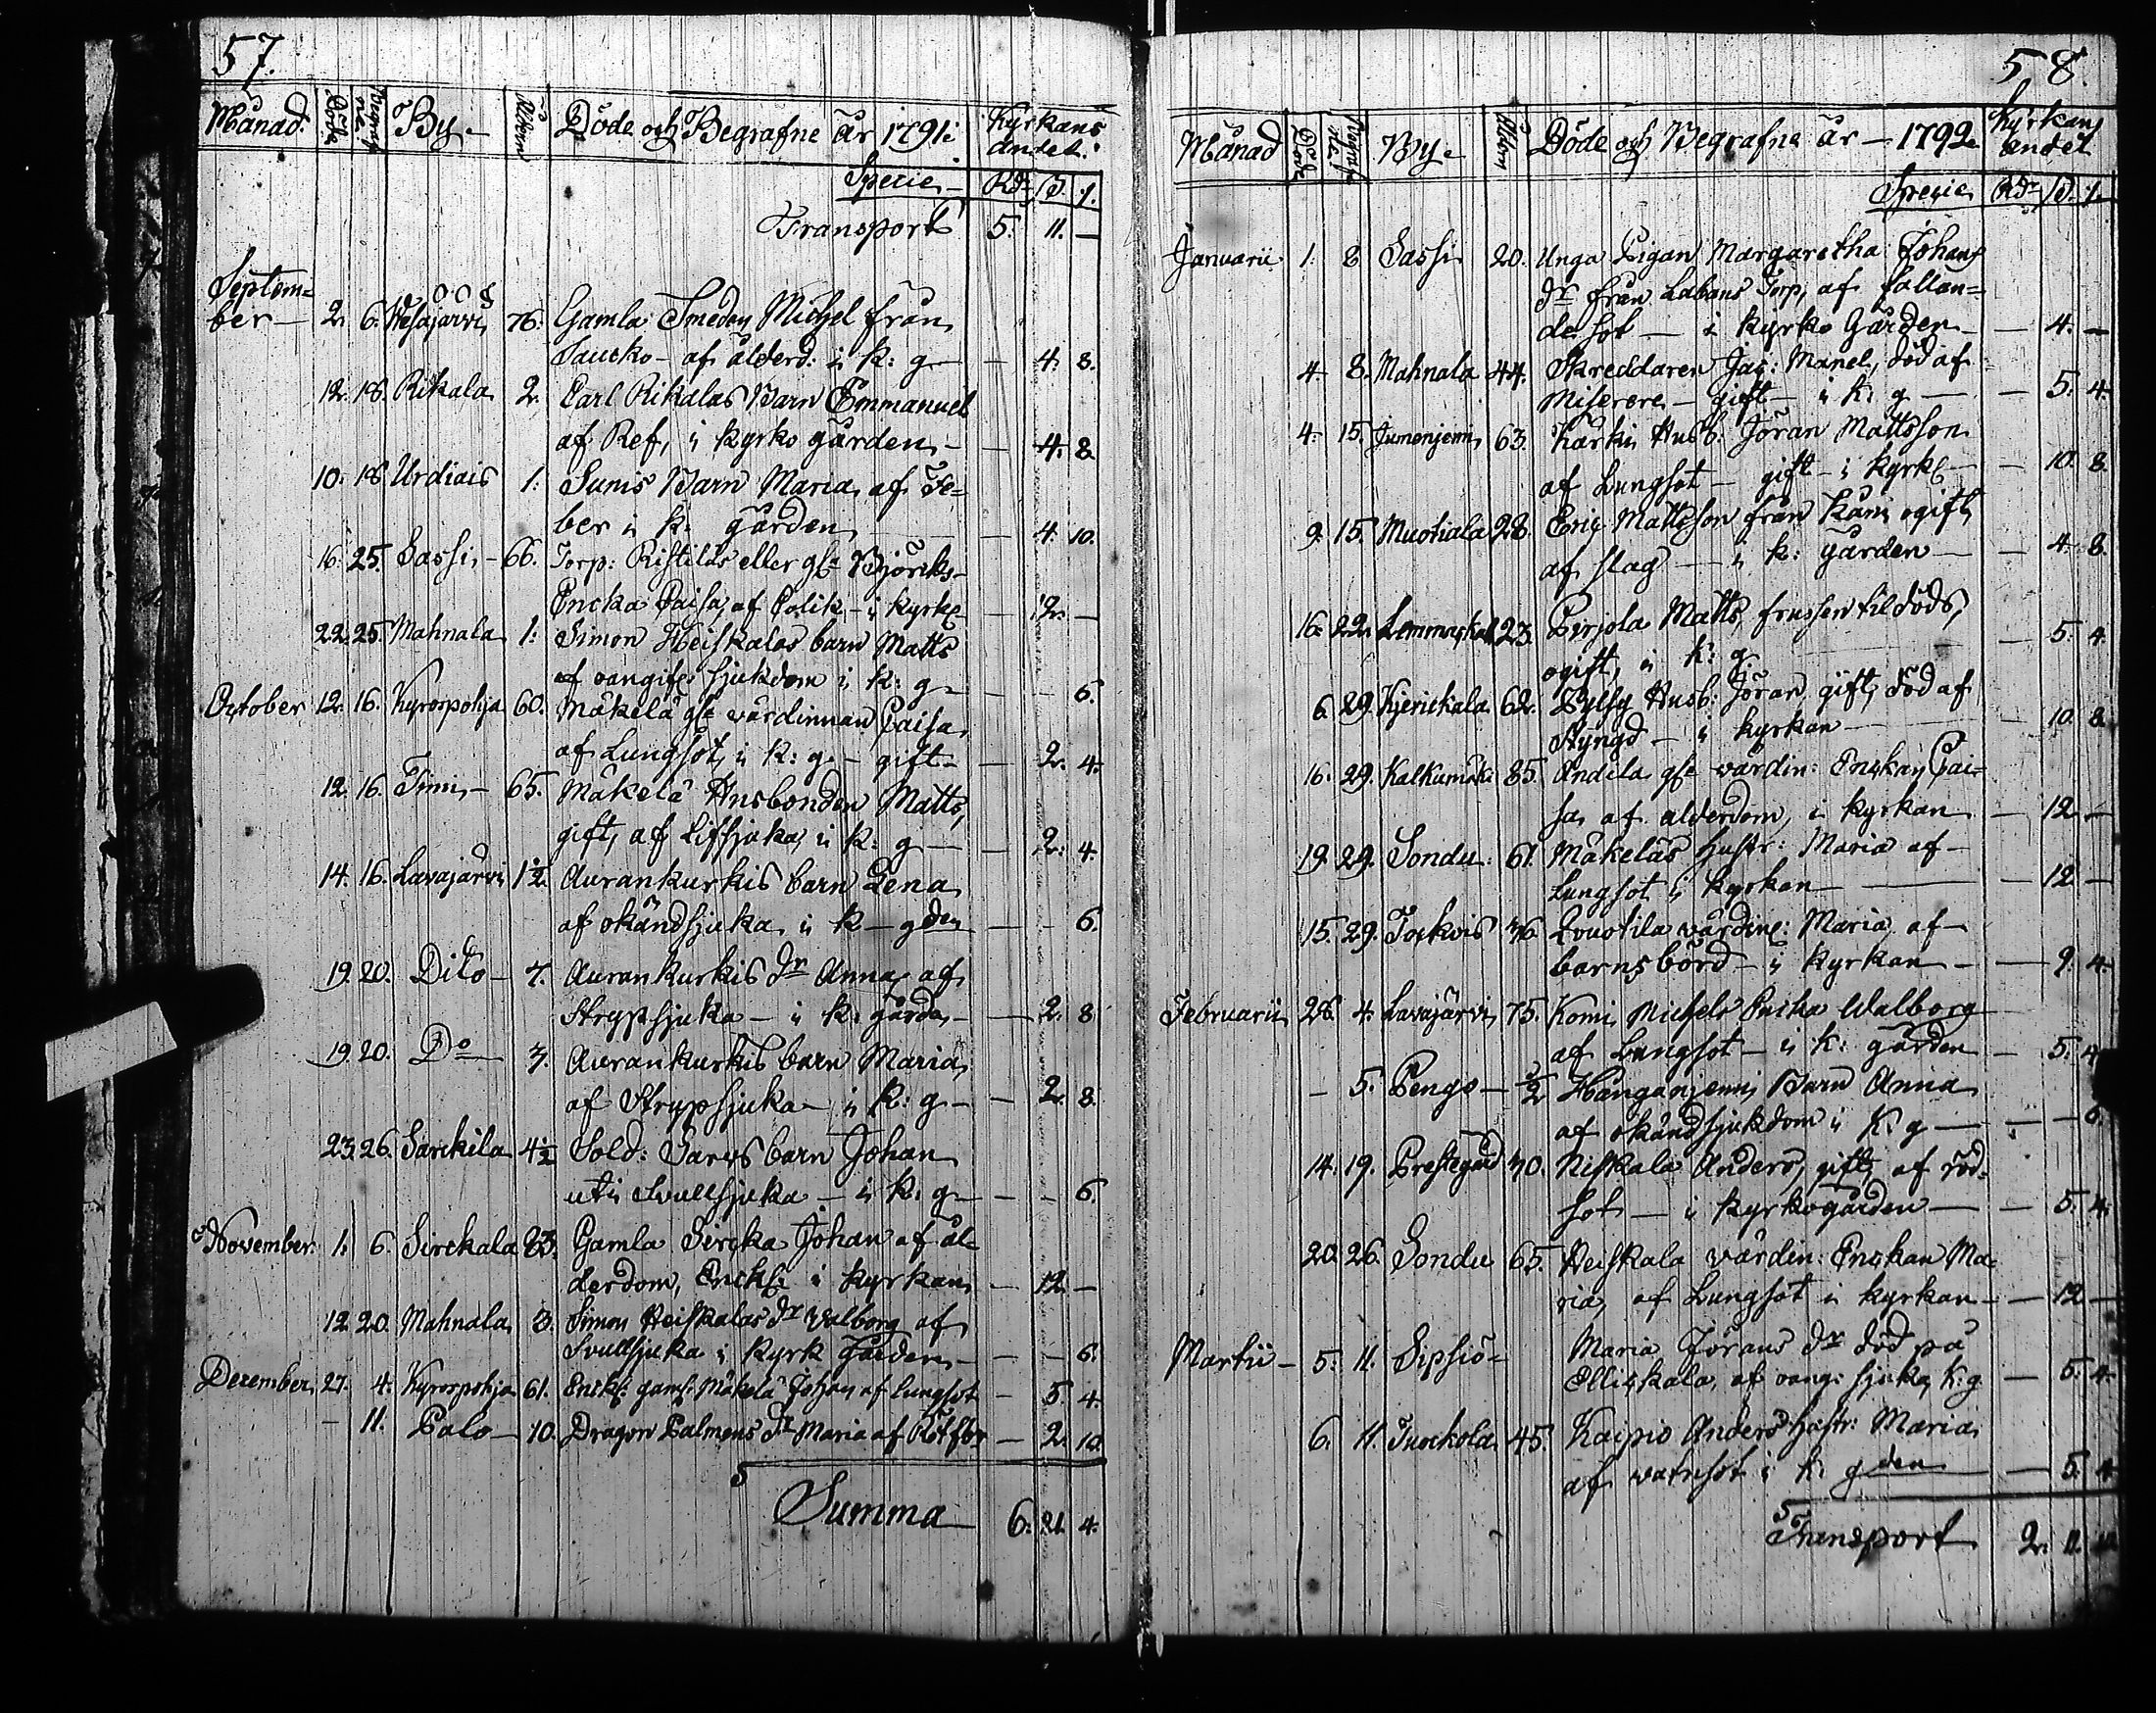 57.
Månad. Döde Begrafne By. Ålder Döde och Begrafne År 1791. Kyrkans andel.
Specie Rdr ß. r.
Transport 5. 11. —
Septem=
ber — 2. 6. Wesajärvi 76. Gamla Smeden Michel från
Saucko — af ålderd: i k: g — — 4. 8.
12. 18. Rikala 2. Carl Rikalas Barn Emmanuel
af Ref, i kyrko gården — — 4. 8.
10. 18. Urdiais 1. Sunis Barn Maria af Fe=
ber i k: gården — 4. 10.
16. 25. Sassi — 66. Torp: Ristilas eller gle Björcks
Encka Caisa, af Colik — i kyrk — 12. —
22. 25. Mahnala 1. Simon Heiskalas barn Matts
af oangife: sjukdom i k: g — — — 6.
October 12. 16. Kyrospohja 60. Mäkelä gle värdinnan Caisa
af Lungsot, i k: g. — gift — — 2. 4.
12. 16. Timi — 65. Mäkelä Husbonden Matts,
gift, af Lifsjuka, i k: g — — 2. 4.
14. 16. Lavajärvi 1 1/2 Aurankurkis barn Lena
af okändsjuka, i k — gden — — 6.
19. 20. Dito — 7. Aurankurkis dr Anna af
Strypsjuka — i k: gården — — 2. 8.
19. 20. Do — 3. Aurankurkis barn Maria
af Strypsjuka — i k: g — — 2. 8.
23. 26. Sarckila 4 1/2 Sold: barn Johan
uti Svullsjuka — i k: g — — — 6.
November. 1. 6. Sirckala 83. Gamla Sircka Johan af ål=
derdom, Enckl: i kyrkan — 12. —
12. 20. Mahnala 3. Simon Heiskalas dr Valborg af
Svullsjuka i kyrk Gården — — — 6.
December 27. 4. Kyrospohja 61. Enckl: gaml: Mäkelä Johan af Lungsot — 5. 4.
— 11. Palo — 10. Dragon Palmens dr Maria af Rötfbr — 2. 10.
Summa 6. 21. 4.
58.
Månad Döde Begrafne By. Ålder Döde och Begrafne År — 1792. Kyrkans andel
Specie Rdr ß. r.
Januarii 1. 8 Sassi 20. Unga Pigan Margaretha Johans
dr från Labans Torp, af fallan=
de sot — i kyrko Gården — — 4. —
4. 8. Mahnala 44. Skreddaren Jac: Manel, död af
Miserere — gift — i k: g — — 5. 4.
4. 15. Jumenjemi 63. Kärki Husb: Jöran Mattsson
af Lungsot — gift — i kyrk — — 10. 8.
9. 15. Muotiala 28. Eric Mattsson från Kämi ogift,
af slag — i k: gården — — 4. 8.
16. 22. 23. Pirjola Matts, frusen til döds,
ogift, i k: g — 5. 4.
6. 29. Kjerickala 62. Husb: Jöran gift, död af
Styngd — i kyrkan — 10. 8.
16. 29. Kalkumäki 85. Andila gle värdin: Enckan Cai=
sa, af ålderdom, i kyrkan — 12 —
19. 29. Sondu: 61. Mäkeläs hustr: Maria af
Lungsot i kyrkan — — 12 —
15. 29. Tockois 36 värdin: Maria, af
barnsbörd — i kyrkan — — 9. 4.
Februarii 26. 4. Lavajärvi 75. Komi Michels Encka Walborg
af Lungsot — i k: gården — 5. 4
— 5. Pengo — 1/2 Hanganjemi Barn Anna
af okändsjukdom i k: g — — — 6.
14. 19. Prestegård 70. Niskala Anders, gift, af röd=
sot — i kyrkogården — — 5. 4.
20. 26. Sondu 65. Heiskala värdin: Enckan Ma=
ria, af Lungsot i kyrkan — — 12 —
Martii — 5. 11. Sipsiö — Maria Jörans dr död på
Ellickala, af oang: sjuka, k: g — 5. 4.
6. 11. Tuockola 45. Kaipio Anders hustr: Maria
af vatnsot i k: gden — 5. 4
Transport 2. 11.